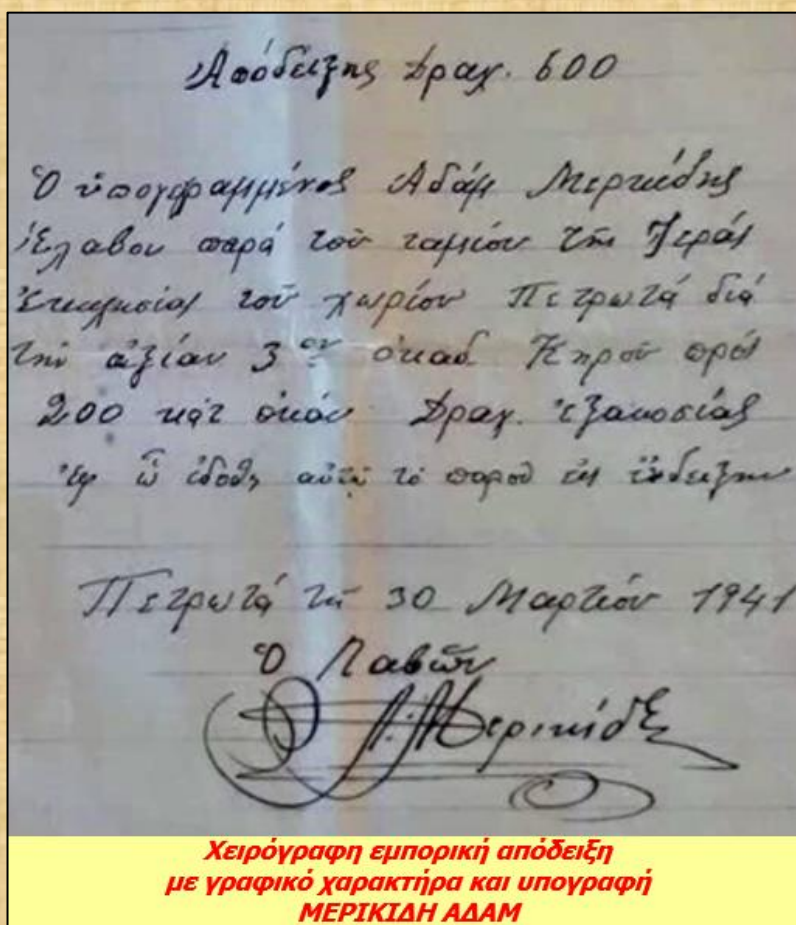 Απόδειξης Δραχ. 600
Ὁ ὑπογεγραμμένος Ἀδάμ Μερικίδης
ἔλαβον παρά τοῦ ταμίου τῆς Ἱεράς
Ἐκκλησίας τοῦ χωρίου Πετρωτά διά
τήν ἀξίαν 3ων ὀκάδ. Κηροῦ πρός
200 κατ ὀκάν Δραχ. ἑξακοσίας
Ἐφ ᾧ ἐδόθη αὐτῷ τό παρόν εἰς ἔνδειξην
Πετρωτά τῇ 30 Μαρτίου 1941
Ὁ Λαβῶν
Α. Μερικίδης
Χειρόγραφη εμπορική απόδειξη
με γραφικό χαρακτήρα και υπογραφή
ΜΕΡΙΚΙΔΗ ΑΔΑΜ